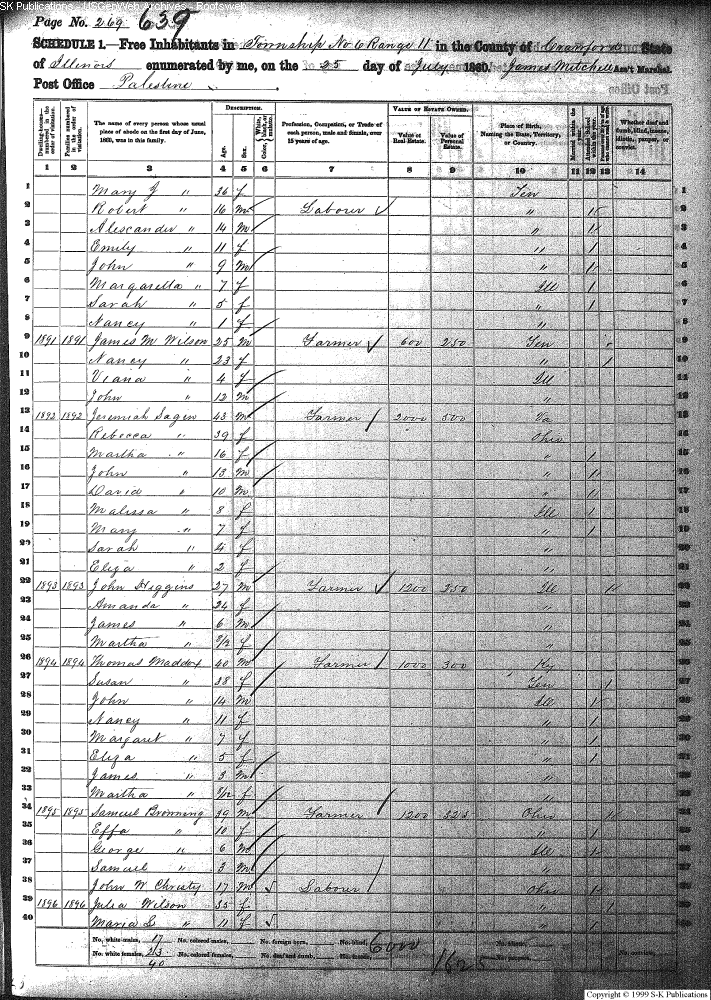 SK Publications - USGenWeb Archives - Rootsweb
Page No. 269 639
SCHEDULE 1.—Free Inhabitants in Township No 6 Range 11 in the County of Crawford State
of Illinois enumerated by me, on the 25 day of July 1860. James Mitchell Ass't Marshal.
Post Office Palestine
Dwelling-houses—numbered in the order of visitation.
Families numbered in the order of visitation.
The name of every person whose usual place of abode on the first day of June, 1860, was in this family.
DESCRIPTION.
Age.
Sex.
Color,
Profession, Occupation, or Trade of each person, male and female, over 15 years of age.
VALUE OF ESTATE OWNED.
Value of Real Estate.
Value of Personal Estate.
Place of Birth, Naming the State, Territory, or Country.
Married within the
Whether deaf and dumb, blind, insane, idiotic, pauper, or convict.
1 2 3 4 5 6 7 8 9 10 11 12 13 14
1 Mary J " 36 f Ten 1
2 Robert " 16 m Labourer " 1 2
3 Alexcander " 14 m " 1 3
4 Emily " 11 f " 1 4
5 John " 9 m " 1 5
6 Margaretta " 7 f Ill 1 6
7 Sarah " 5 f " 1 7
8 Nancy " 1 f " 8
9 1891 1891 James M Wilson 25 m Farmer 600 250 Ten 9
10 Nancy " 23 f " 1 10
11 Viana " 4 f Ill 11
12 John " 12 m " 12
13 1892 1892 Jeremiah Sagen 43 m Farmer 2000 500 Va 13
14 Rebecca " 39 f Ohio 14
15 Martha " 16 f " 1 15
16 John " 13 m " 1 16
17 David " 10 m " 1 17
18 Malissa " 8 f Ill 1 18
19 Mary " 7 f " 1 19
20 Sarah " 4 f " 20
21 Eliza " 2 f " 21
22 1893 1893 John Higgins 27 m Farmer 1200 250 Ill 1 22
23 Amanda " 24 f " 23
24 James " 6 m " 24
25 Martha " 8/12 f " 25
26 1894 1894 Thomas Maddox 40 m Farmer 1000 300 Ky 26
27 Susan " 38 f Ten 1 27
28 John " 14 m Ill 1 28
29 Nancy " 11 f " 1 29
30 Margaret " 7 f " 1 30
31 Eliza " 5 f " 1 31
32 James " 3 m " 32
33 Martha " 8/12 f " 33
34 1895 1895 Samuel Browning 39 m Farmer 1200 325 Ohio 1 34
35 Effa " 10 f " 1 35
36 George " 6 m Ill 1 36
37 Samuel " 3 m " 37
38 John W Christy 17 m Labourer Ohio 1 38
39 1896 1896 Julia Wilson 35 f " 1 39
40 Maria L " 11 f " 1 40
No. white males, 17 No. colored males, No. foreign born, No. blind, 6000
No. white females, 23 No. colored females, No. deaf and dumb, 1625
40
Copyright © 1999 S-K Publications